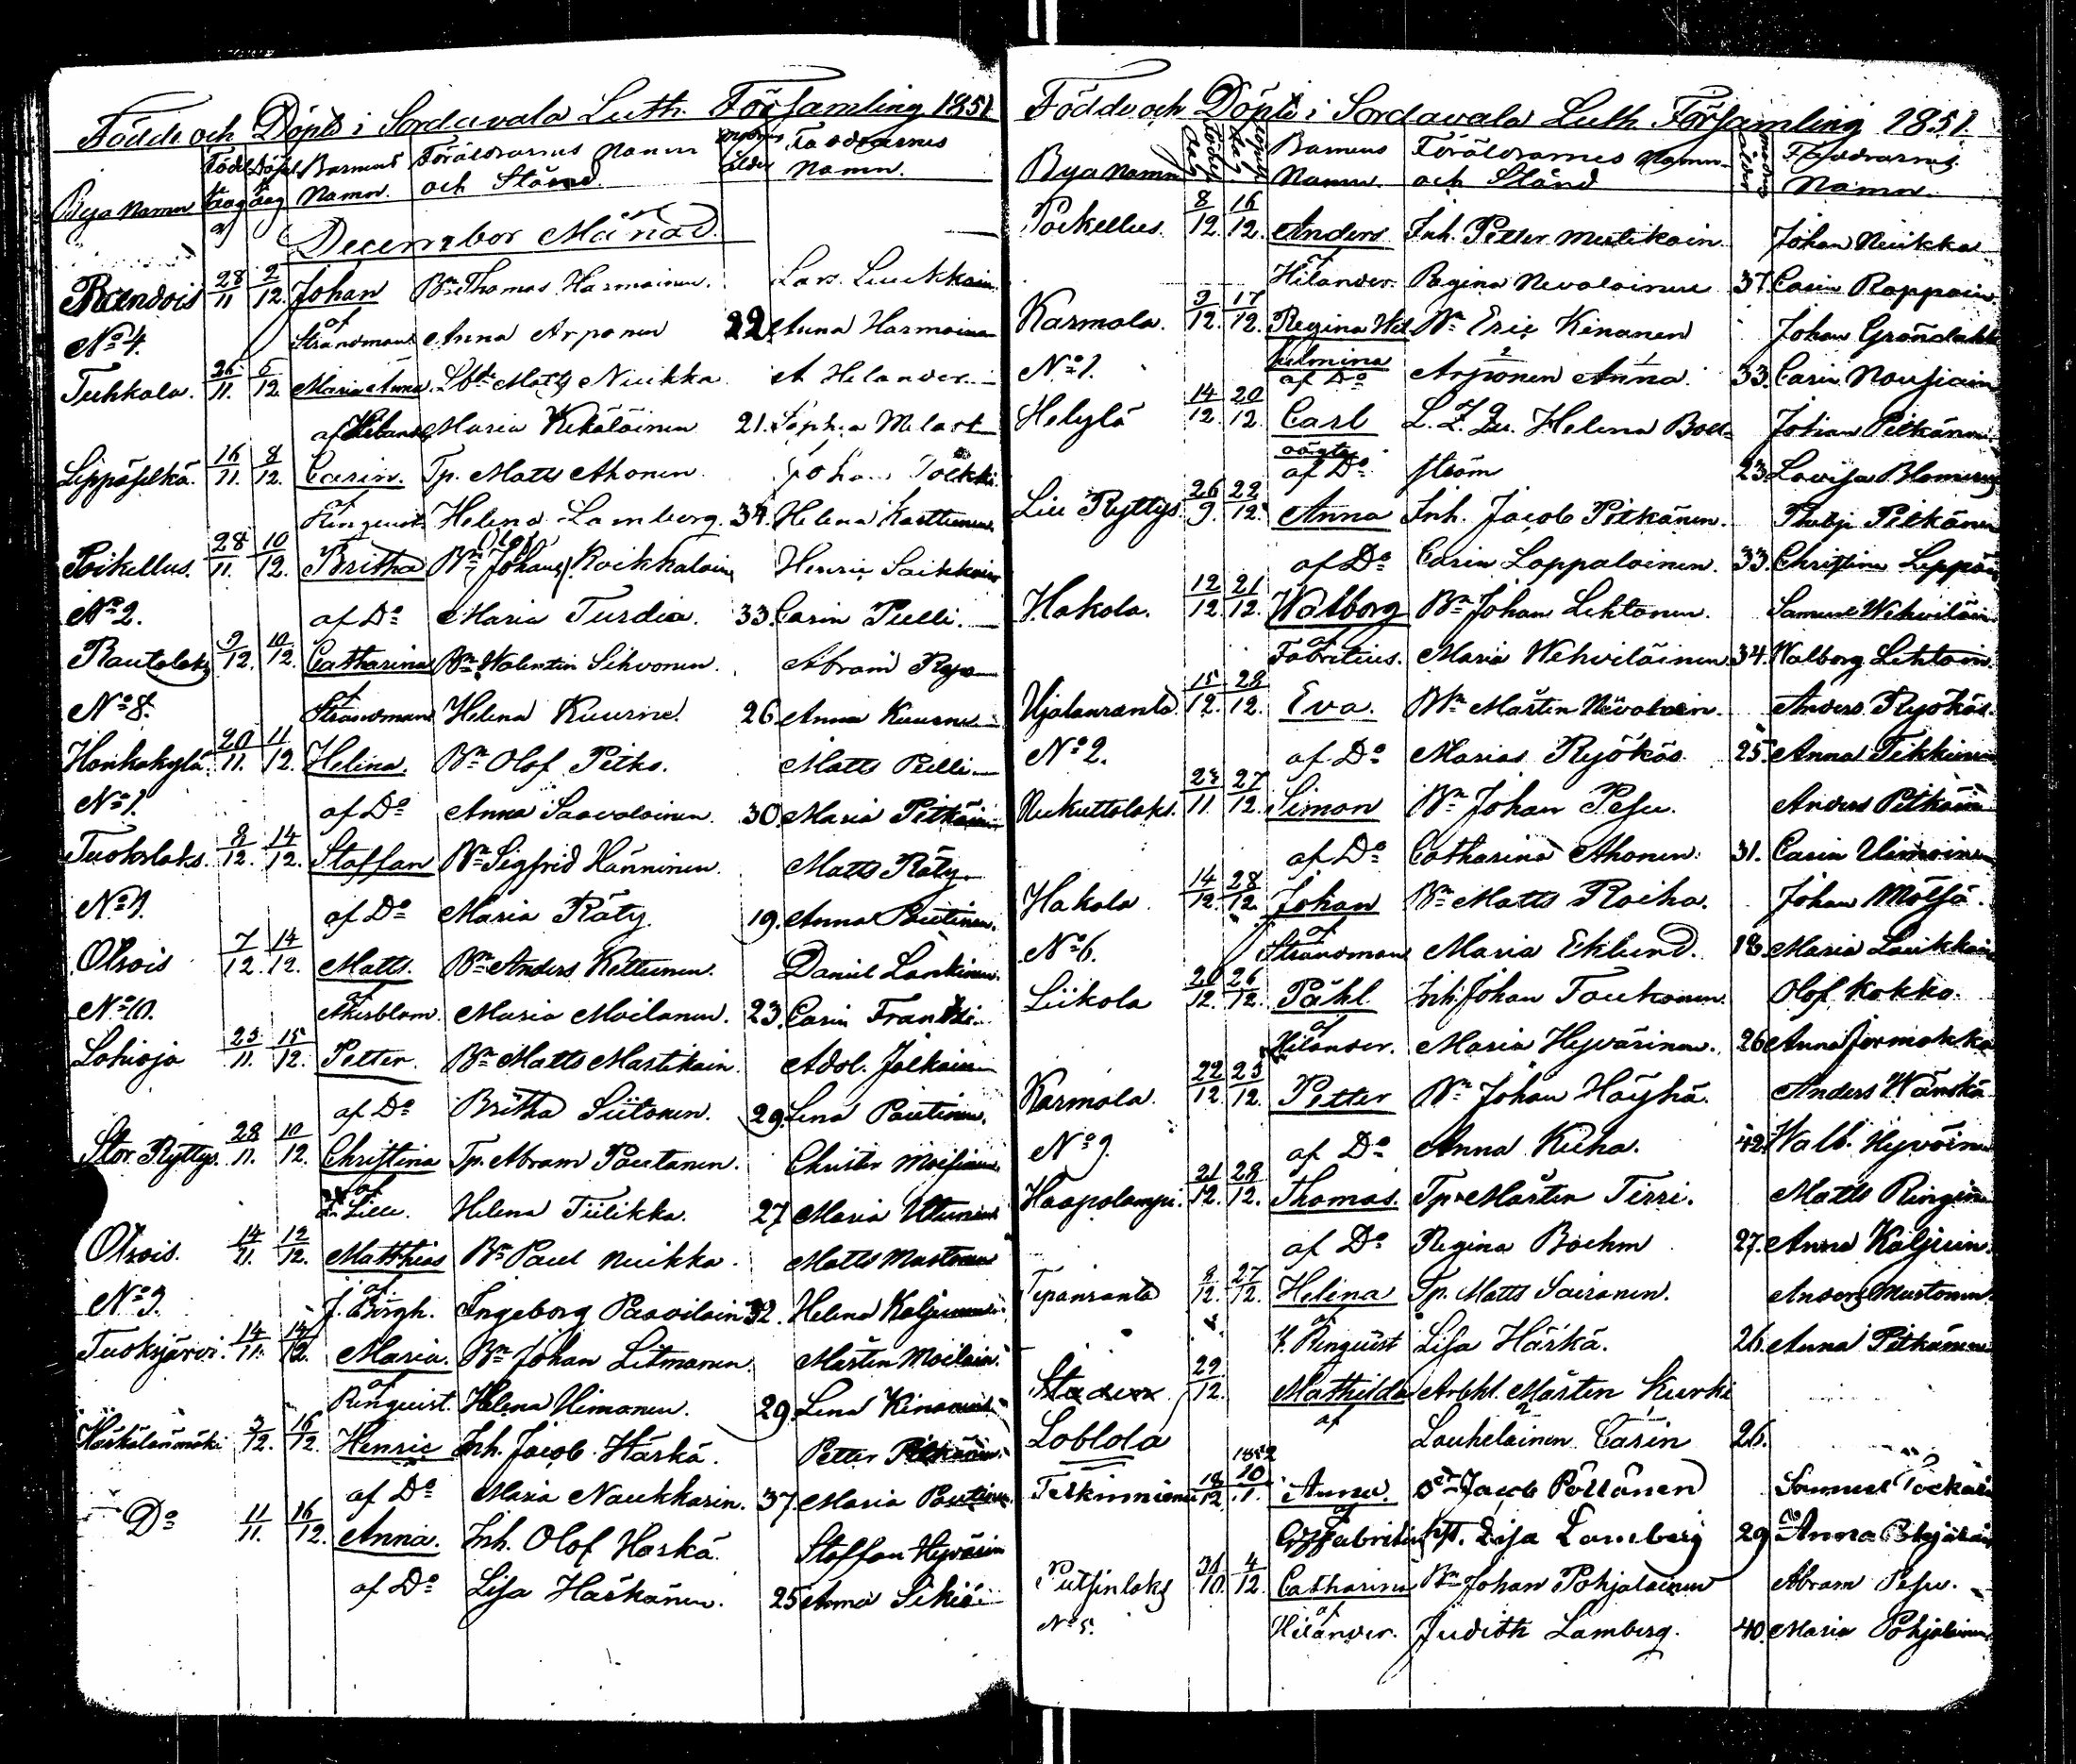 Födde och Döpte i Sordavala Luth. Församling 1851
Bya Namn Född dag Döpt dag Barnens Namn. Föräldrarnes Namn och Stånd. modrens ålder Faddrarnes Namn.
December Månad.
28/11 2/12. Johan Bn Thomas Harmainen. Lars Luukkain
No 4. af Strandman Anna Arponen 22 Anna Harmoinen
Tuhkala. 25/11. 5/12 Maria Anna Matts Nuikka A Helander
af Maria Kekäläinen 21. Sophia Melart
Leppäselkä. 16/11. 8/12. Carin. Tp. Matts Ahonen. Johan Tolkki
af Ringquist Helena Lamberg. 34. Helena Karttunen
Poikellus. 28/11. 10/12. Britha Bn Olof (Johans) Roikkalain Henric Saikkoin
No 2. af Do Maria Turdia. 33. Carin Pelli.
Rautalaks 9/12. 10/12. Catharina Bn Valentin Sihvonen. Abram
No 8. af Strandman Helena Kuurne. 26 Anna Kuurne
Honkakylä. 20/11. 11/12. Helena. Bn Olof Pitko. Matts Pelli
No 1. af Do Anna Saavalainen. 30. Maria Pitkäin
Tuokslaks. 8/12. 14/12. Staffan Bn Sigfrid Hänninen. Matts Räty
No 9. af Do Maria Räty. 19. Anna Pautinen.
Otsois 7/12. 14/12. Matts. Bn Anders Kettunen. Daniel Lankinen.
No 10. af Åkerblom. Maria Moilanen. 23. Carin Frantsi
Lohioja 23/11. 15/12. Petter. Bn Matts Martikain. Adol. Jalkain
af Do Britha Siitonen. 29. Lena Pautinen.
Stor Ryttys. 28/11. 10/12. Christina Tp. Abram Pautanen. Christer
af Lille. Helena Tiilikka. 27 Maria
Otsois. 14/11. 12/12. Matthias Bn Paul Nuikka. Matts Mustonen
No 3. af J. Borgh. Ingeborg Paavilain 32. Helena Kaljunen
Tuoksjärvi. 14/11. 14/12. Maria. Bn Johan Litmanen Mårten Moilain.
af Ringquist. Helena Uimonen. 29 Lena Kinnunen
Härkälänmäki 3/12. 16/12. Henric Inh. Jacob Härkä. Petter Pitkänen.
af Do Maria Naukkarin. 37. Maria Pautinen
Do 11/11. 16/12. Anna. Inh. Olof Harkä. Staffan Hyvärin
af Do Lisa Harkänen. 25 Anna
Födde och Döpte i Sordavala Luth. Församling 1851.
Bya Namn födelse dag döpelse dag Barnens Namn. Föräldrarnes Namn och Stånd modrens ålder Faddrarnes Namn.
Poikellus. 8/12. 16/12. Anders Inh. Petter Mertikain. Johan Nuikka
af Hilander. Regina Nevalainen 37. Carin Rappain.
Karmala. 9/12. 17/12. Regina Wil Bn Eric Kinanen Johan Gröndahl
No 1. helmina af Do Arponen Anna. 33. Carin Nousiain
Helylä 14/12. 20/12. Carl L. Z. Qu. Helena Boe- Johan Pitkänen
oägta af Do ström 23. Lovisa
Lill Ryttys. 26/9. 22/12. Anna Inh. Jacob Pitkänen. Philip Pitkänen
af Do Carin Lappalainen. 33. Christina Leppän
Hakola. 12/12. 21/12. Walborg Bn Johan Lehtonen. Samuel Wehviläin.
af Fabritius. Maria Wehviläinen 34. Walborg Lehtoin.
Hjolanranta 15/12. 28/12. Eva. Bn Mårten Nevalain. Anders Ryökäs.
No 2. af Do Marias Ryökäs. 25. Anna Tikkunen
Rukuttolaks. 23/11. 27/12. Simon Bn Johan Pesu. Anders Pitkänen
af Do Catharina Ahonen. 31. Carin Uimoinen
Hakola. 14/12. 28/12. Johan Bn Matts Roiha. Johan Mölsä.
No 6. af Strandman Maria Eklund. 18. Maria Laukkain
Liikola 20/12. 26/12. Påhl. Inh. Johan Tauhonen. Olof Kokko.
af Hilander. Maria Hyvärinen. 26 Anna Jermakka
Karmala. 22/12. 23/12. Petter Bn Johan Häyhä. Anders Wänskä
No 9. af Do Anna Kuha. 42. Walb. Hyvöinen
Haapalampi. 21/12. 28/12. Thomas. Tp. Mårten Tirri. Matts Ringinen
af Do Regina Boehm 27. Anna Kaljuin.
Tepanranta 8/12. 27/12. Helena Tp. Matts Sairanen. Anders Mustonen.
af Y. Ringquist Lisa Härkä. 26. Anna Pitkänen
Staden 29/12. Mathilda Arbkl. Mårten Kurki
Loblola af Lauhelainen Carin 26.
Telkinniemi 18/12. 1852 10/1. Anna. Sdt Jacob Pöllänen Samuel
af Gffabritius Lisa Lamberg 29 Anna
Putsinlaks 31/10. 4/12. Catharina Bn Johan Pohjalainen Abram Pesu.
No 5. af Hilander. Judith Lamberg. 40. Maria Pohjalainen